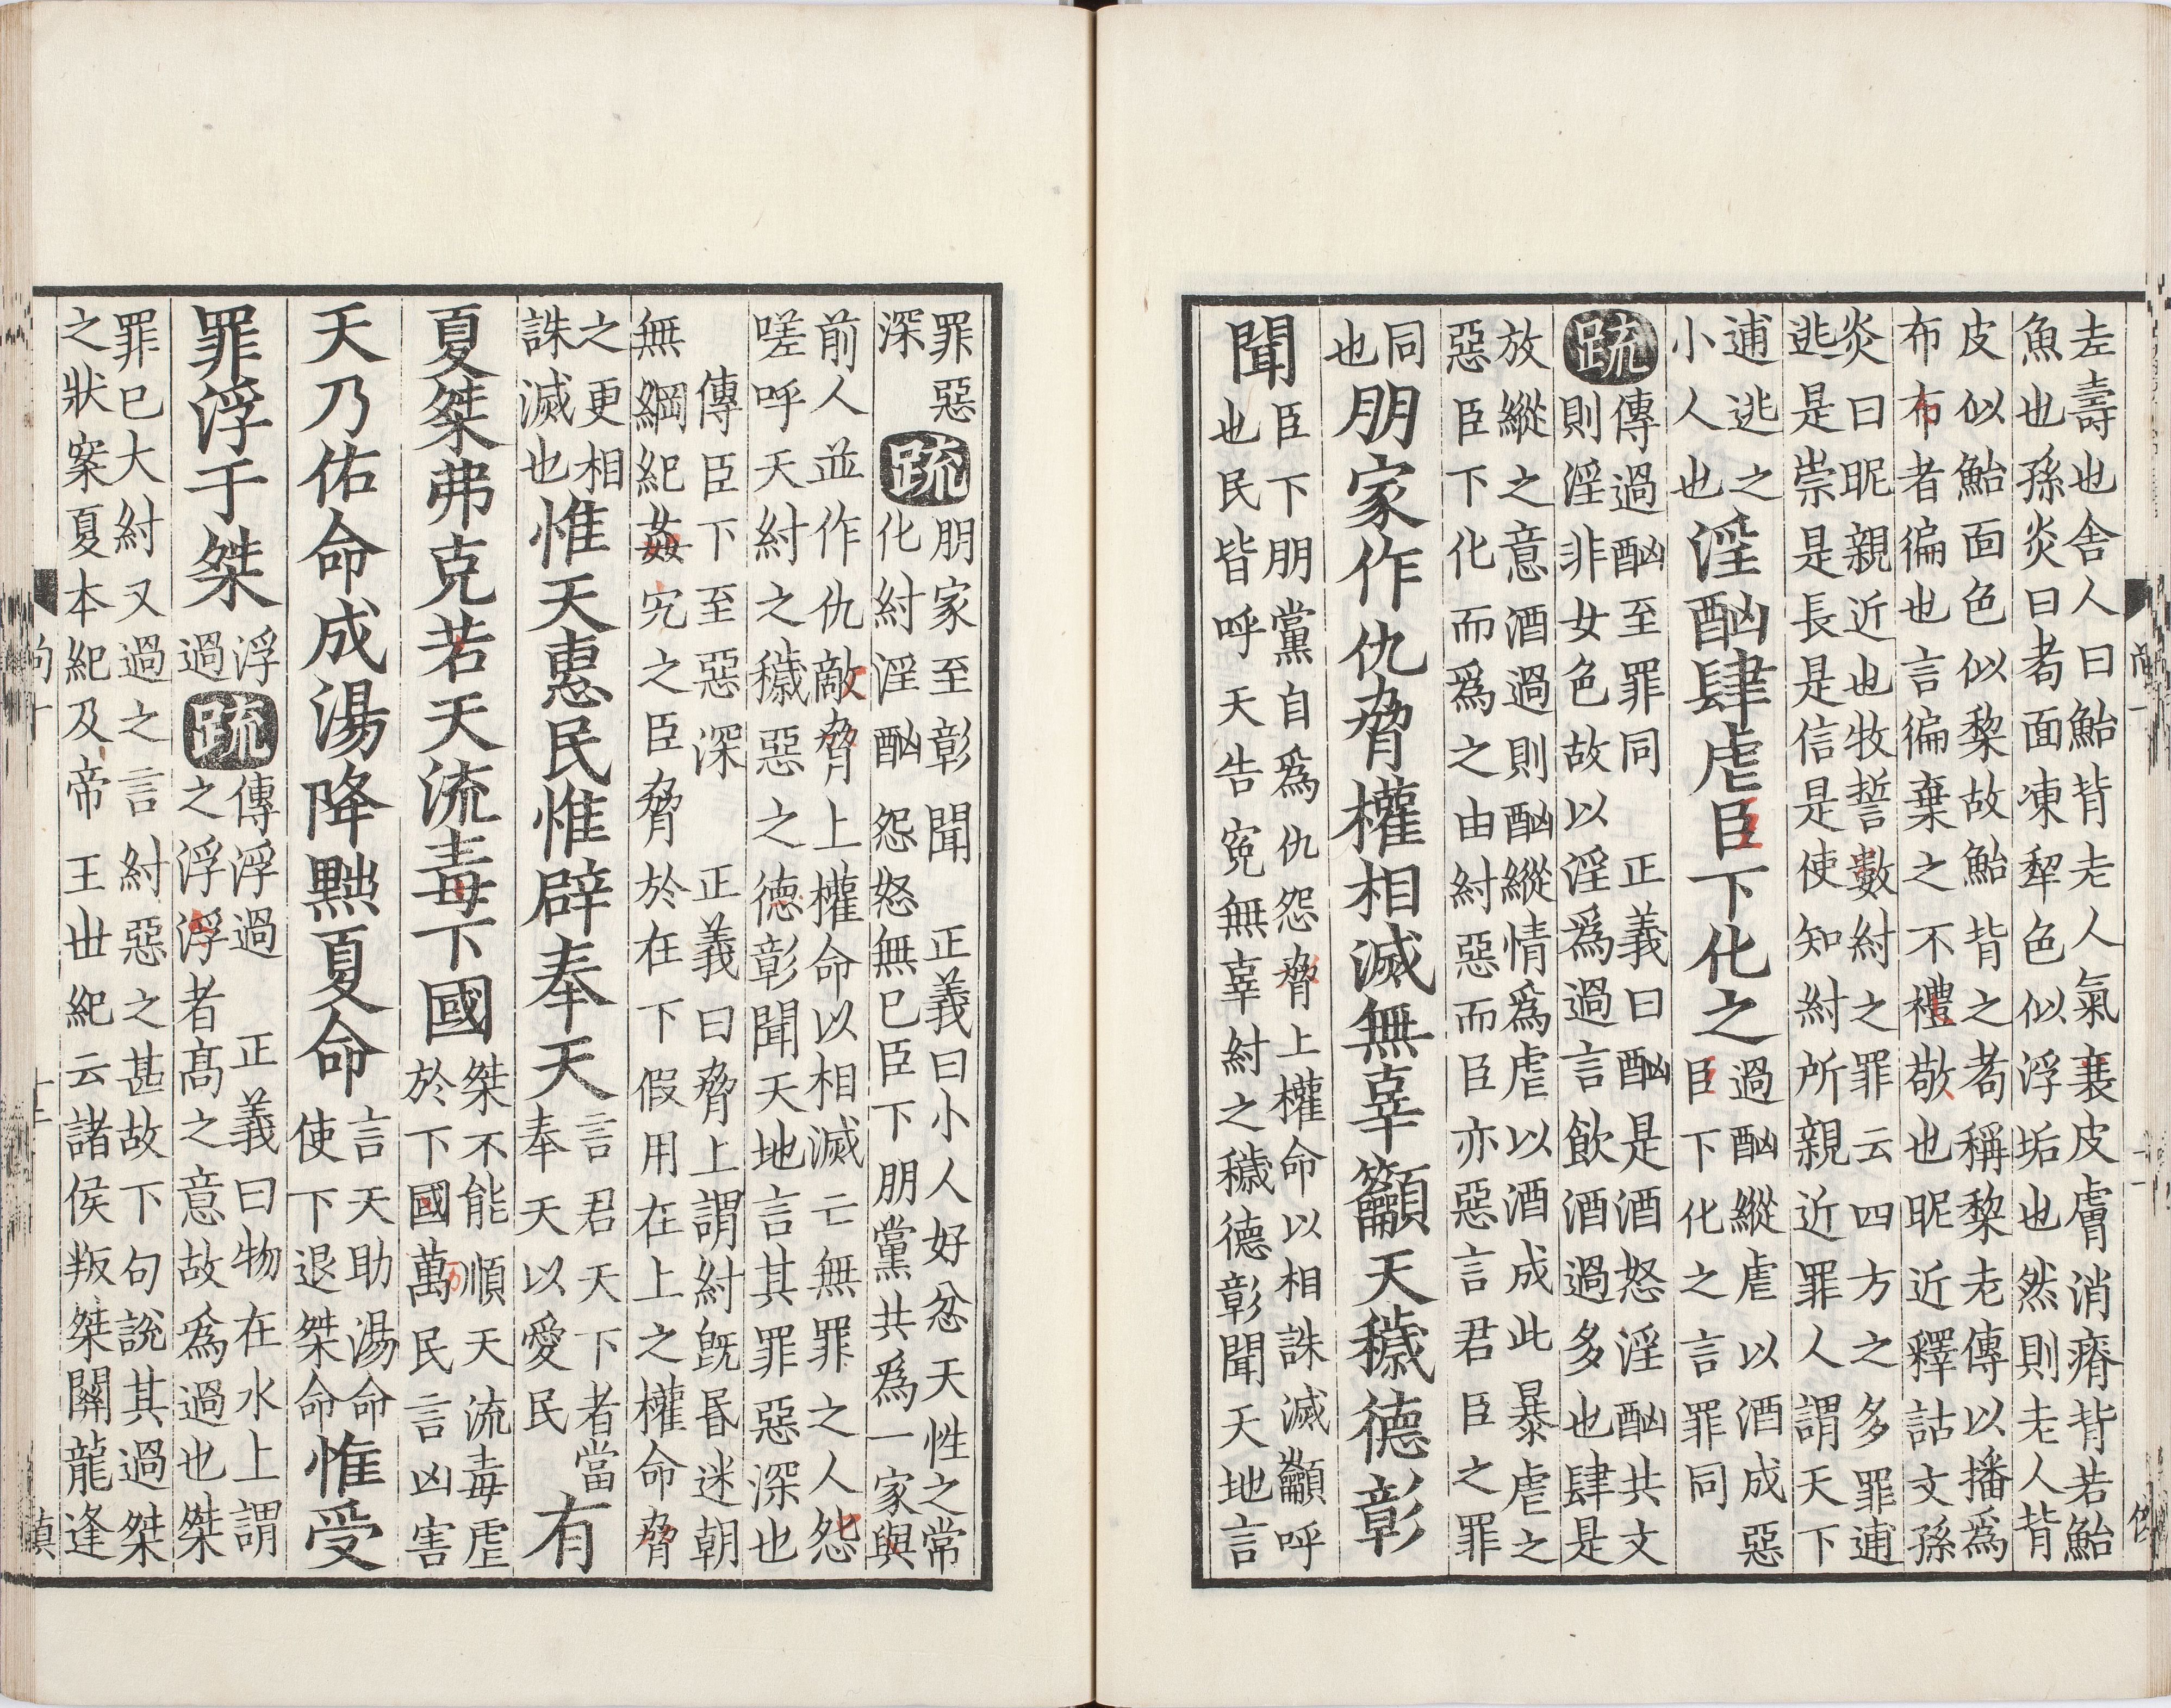 老壽也舍人曰鮐背老人氣衰皮膚消瘠背若鮐
魚也孫炎曰耇面凍犂色似浮垢也然則老人背
皮似鮐面色似黎故鮐背之耇稱黎老傳以播爲
布布者徧也言徧棄之不禮敬也昵近釋詁文孫
炎曰昵親近也牧誓數紂之罪云四方之多罪逋
逃是崇是長是信是使知紂所親近罪人謂天下
逋逃之
小人也
淫酗肆虐臣下化之
過酗縱虐以酒成惡
臣下化之言罪同
疏
傳過酗至罪同 正義曰酗是酒怒淫酗共文
則淫非女色故以淫爲過言飲酒過多也肆是
放縱之意酒過則酗縱情爲虐以酒成此暴虐之
惡臣下化而爲之由紂惡而臣亦惡言君臣之罪
同
也
朋家作仇脅權相滅無辜籲天穢德彰
聞
臣下朋黨自爲仇怨脅上權命以相誅滅籲呼
也民皆呼天告寃無辜紂之穢德彰聞天地言
罪惡
深
疏
朋家至彰聞 正義曰小人好忿天性之常
化紂淫酗怨怒無已臣下朋黨共爲一家與
前人並作仇敵脅上權命以相滅亡無罪之人怨
嗟呼天紂之穢惡之德彰聞天地言其罪惡深也
傳臣下至惡深 正義曰脅上謂紂旣昬迷朝
無綱紀姦宄之臣脅於在下假用在上之權命脅
之更相
誅滅也
惟天惠民惟辟奉天
言君天下者當
奉天以愛民
有
夏桀弗克若天流毒下國
桀不能順天流毒虐
於下國萬民言凶害
天乃佑命成湯降黜夏命
言天助湯命
使下退桀命
惟受
罪浮于桀
浮
過
疏
傳浮過 正義曰物在水上謂
之浮浮者高之意故爲過也桀
罪已大紂又過之言紂惡之甚故下句說其過桀
之狀案夏本紀及帝王世紀云諸侯叛桀關龍逢